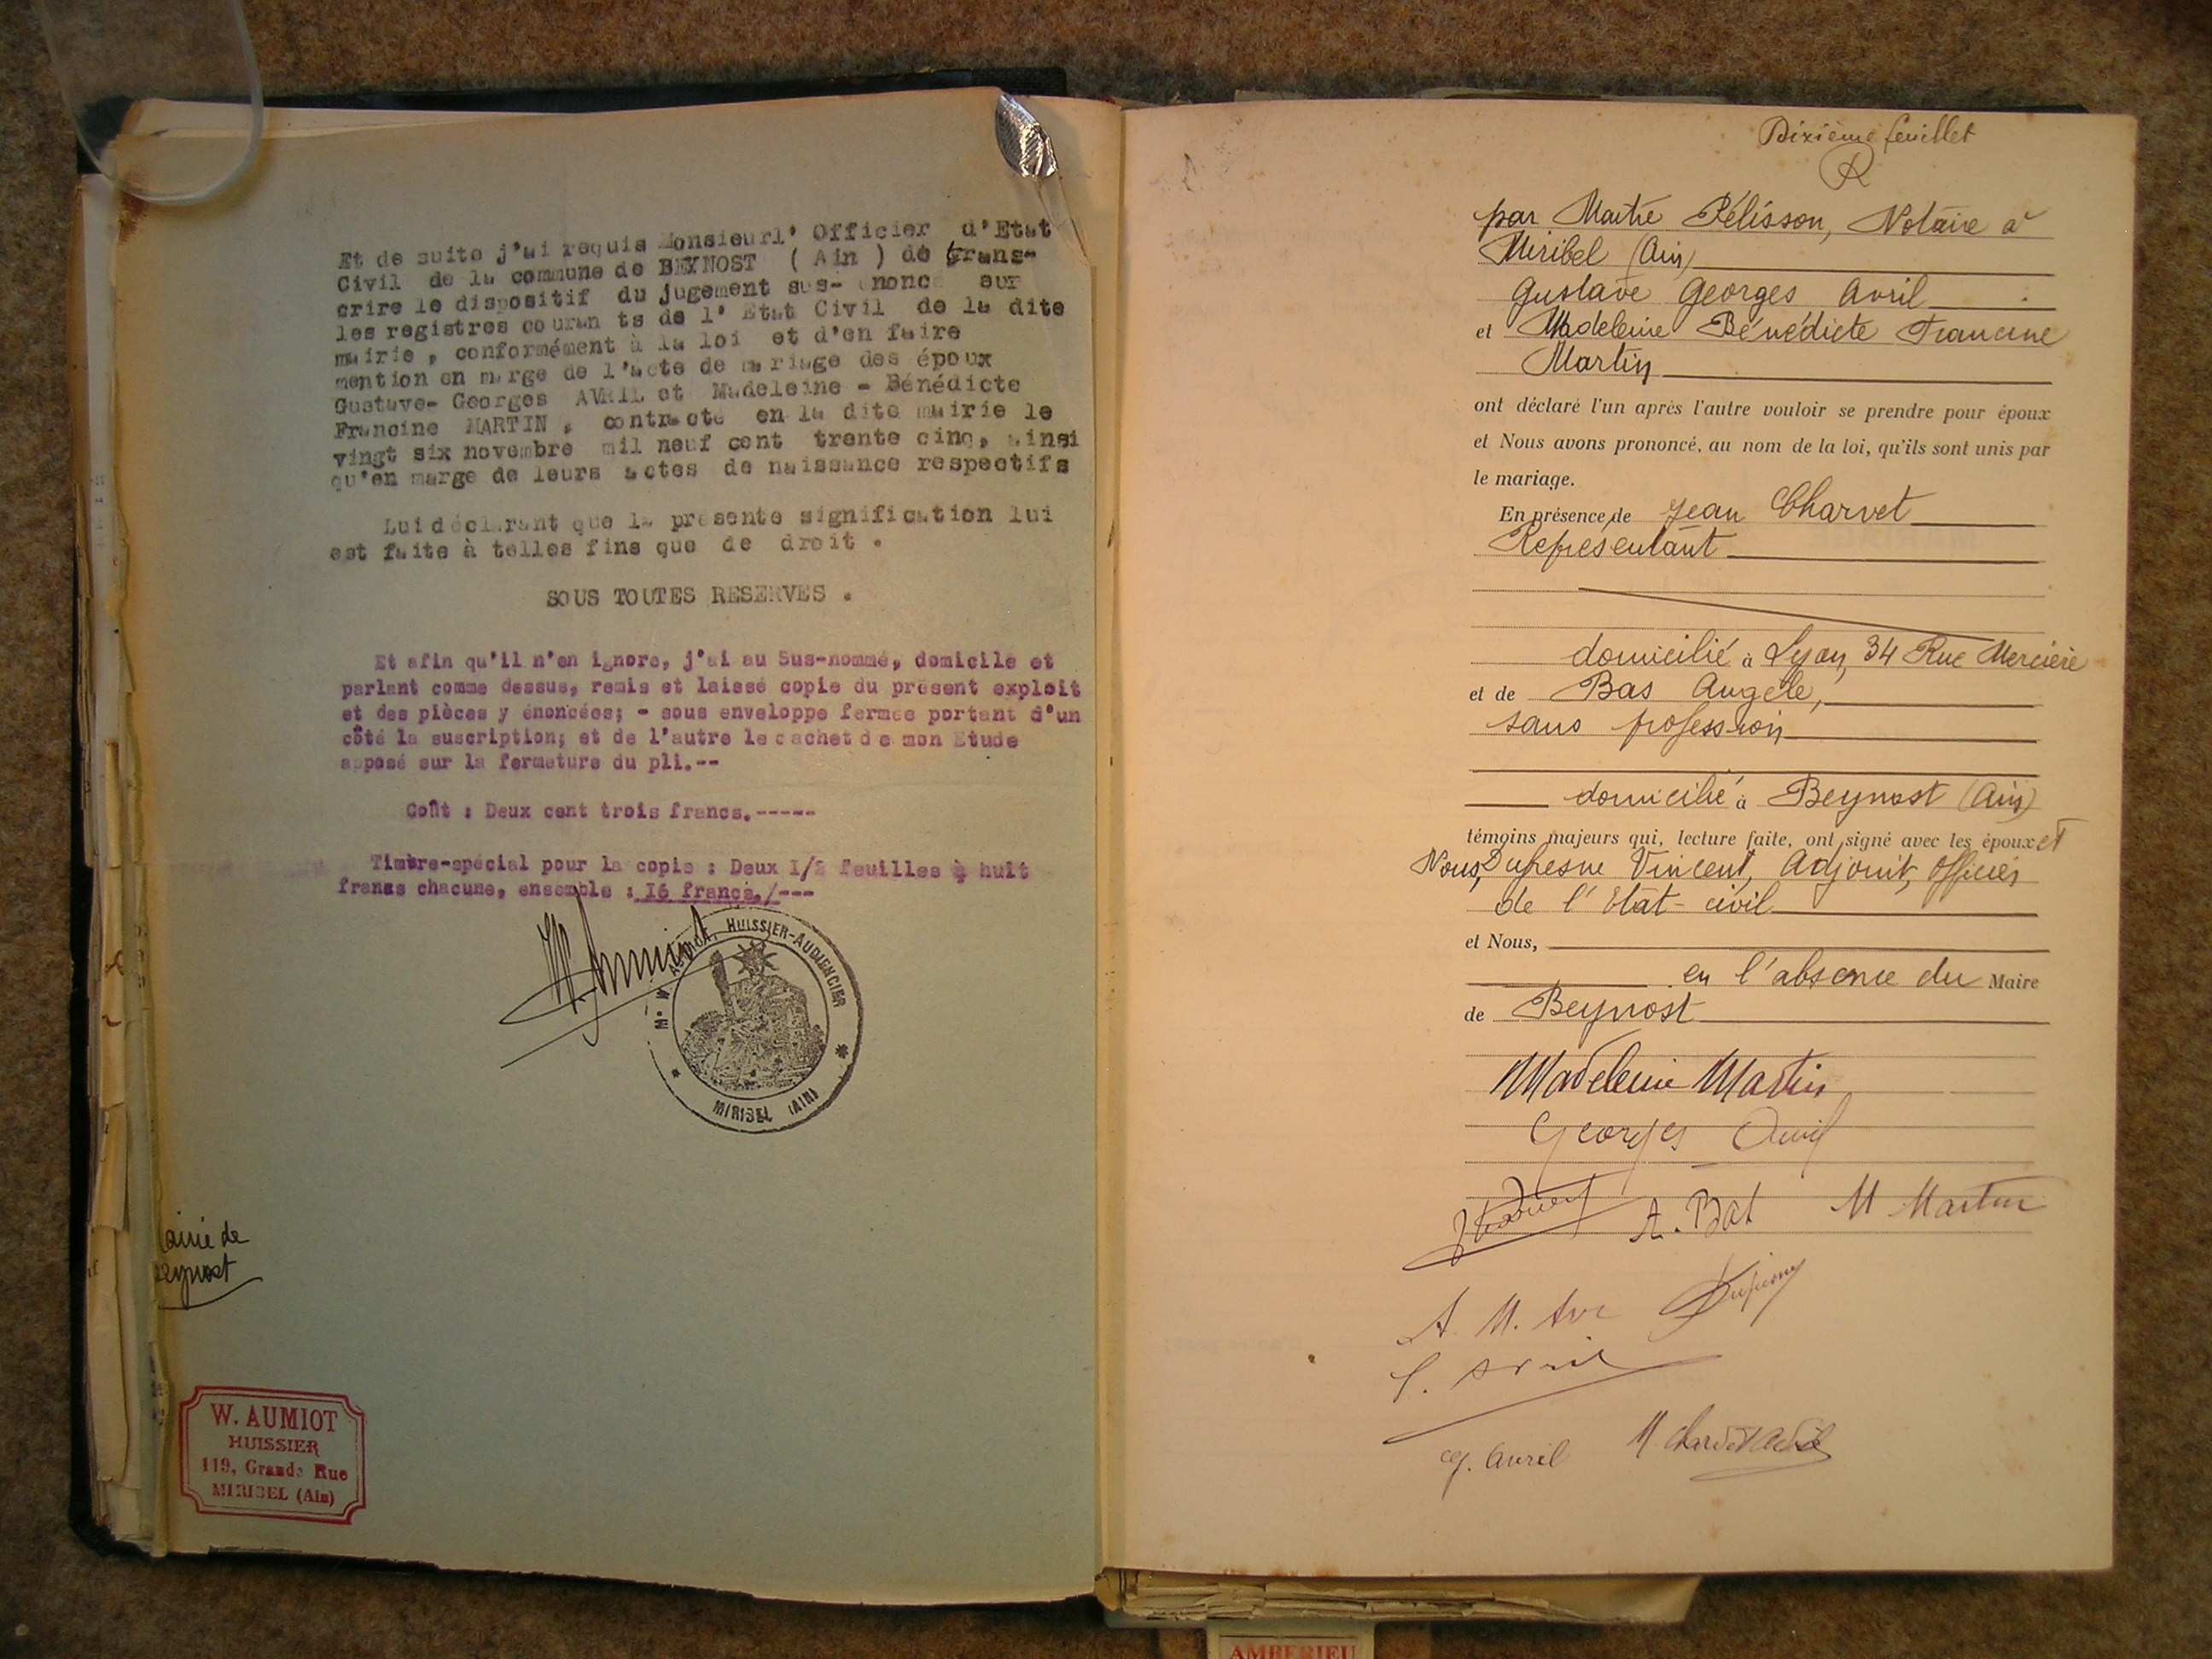 Et de suite j'ai requis Monsieurl' Officier d'Etat
Civil de la commune de BEYNOST ( Ain ) de trans-
crire le dispositif du jugement sus- enoncé sur
les registres couran ts de l' Etat Civil de la dite
mairie , conformément à la loi et d'en faire
mention en marge de l'acte de mariage des époux
Gustave- Georges AVRIL et Madeleine - Bénédicte
Francine MARTIN , contracté en la dite mairie le
vingt six novembre mil neuf cent trente cinq, ainsi
qu'en marge de leurs actes de naissance respectifs
Lui déclarant que la présente signification lui
est faite à telles fins que de droit .
SOUS TOUTES RESERVES .
Et afin qu'il n'en ignore, j'ai au Sus-nommé, domicile et
parlant comme dessus, remis et laissé copie du présent exploit
et des pièces y énoncées; - sous enveloppe fermée portant d'un
côté la suscription; et de l'autre le cachet de mon Etude
apposé sur la fermeture du pli.--
Coût : Deux cent trois francs.-----
Timbre-spécial pour la copie : Deux 1/2 feuilles à huit
francs chacune, ensemble : 16 francs./---
W. Aumiot
Me W. AUMIOT, HUISSIER-AUDIENCIER
MIRIBEL (AIN)
Mairie de
Beynost
W. AUMIOT
HUISSIER
119, Grande Rue
MIRIBEL (Ain)
Dixième feuillet
par Maître Pélisson, Notaire à
Miribel (Ain)
Gustave Georges Avril
et Madeleine Bénédicte Francine
Martin
ont déclaré l'un après l'autre vouloir se prendre pour époux
et Nous avons prononcé, au nom de la loi, qu'ils sont unis par
le mariage.
En présence de Jean Charvet
Représentant
domicilié à Lyon, 34 Rue Mercière
et de Bas Angèle,
sans profession
domicilié à Beynost (Ain)
témoins majeurs qui, lecture faite, ont signé avec les époux et
Nous, Dufresne Vincent, Adjoint, Officier
de l'Etat-civil
et Nous,
en l'absence du Maire
de Beynost
Madeleine Martin
Georges Avril
A. Bas M Martin
Dufresne
g. Avril
AMBERIEU